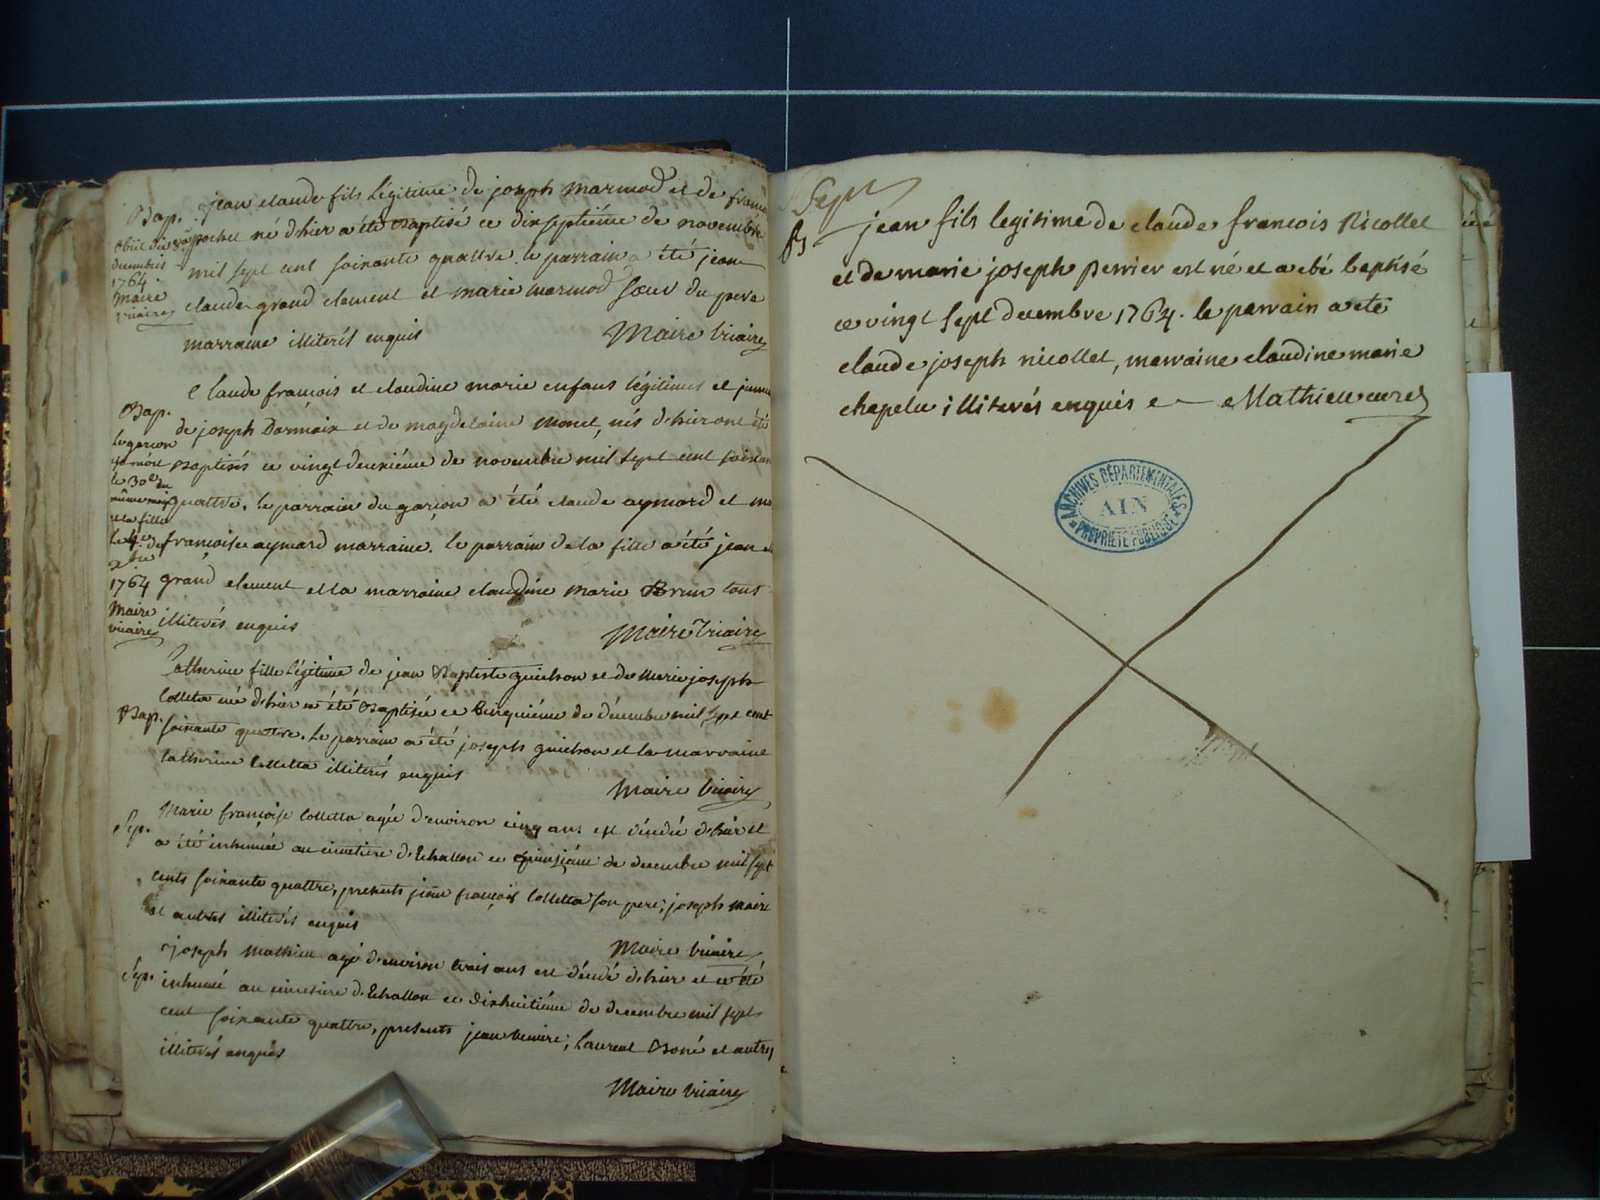 Bap. jean claude fils légitime de joseph marmod et de
né d'hier a été Baptisé ce dixseptiéme de novembre
mil sept cent soixante quattre. le parrain a été jean
claude grand clement et marie marmod sœur du pere
marraine illiterés enquis Maire vicaire
obiit
decembris
1764.
Maire
vicaire
Claude françois et claudine marie enfans légitimes et
Bap. de joseph Darmaix et de magdelaine monet, nés d'hier ont été
Baptisés ce vingt deuxiéme de novembre mil sept cent
quattre. le parrain du garçon a été claude aymard et
françoise aymard marraine. le parrain de la fille a été jean
grand clement et la marraine claudine marie Brun tous
illiterés enquis Maire Vicaire
le garçon
est mort
le 30e du
même mois
et la fille
le 4e de
1764
Maire
vicaire
Catherine fille légitime de jean Baptiste guichon et de Marie joseph
Colletta née d'hier a été Baptisée ce Cinquiéme de décembre mil sept cent
Bap. soixante quattre. Le parrain a été joseph guichon et la marraine
Catherine Colletta illiterés enquis
Maire Vicaire
Marie françoise Colletta agée d'environ cinq ans est décédée d'hier et
Sep. a été inhumée au cimetiere d'Echallon ce quinziéme de decembre mil sept
cents soixante quattre, presents jean françois Colletta son pere, joseph maire
et autres illiterés enquis
Maire Vicaire
joseph mathieu agé d'environ trois ans est décédé d'hier et a été
Sep. inhumé au cimetiere d'Echallon ce dixhuitiéme de decembre mil sept
cent soixante quattre, presents jean ; Laurent Boné et autres
illiterés enquis
Maire vicaire
jean fils legitime de claude francois Nicollet
et de marie joseph Perrier est né et a eté baptisé
ce vingt sept decembre 1764. le parrain a eté
claude joseph nicollet, marraine claudine marie
chapelu illiterés enquis Mathieu curé
ARCHIVES DÉPARTEMENTALES
AIN
PROPRIÉTÉ PUBLIQUE